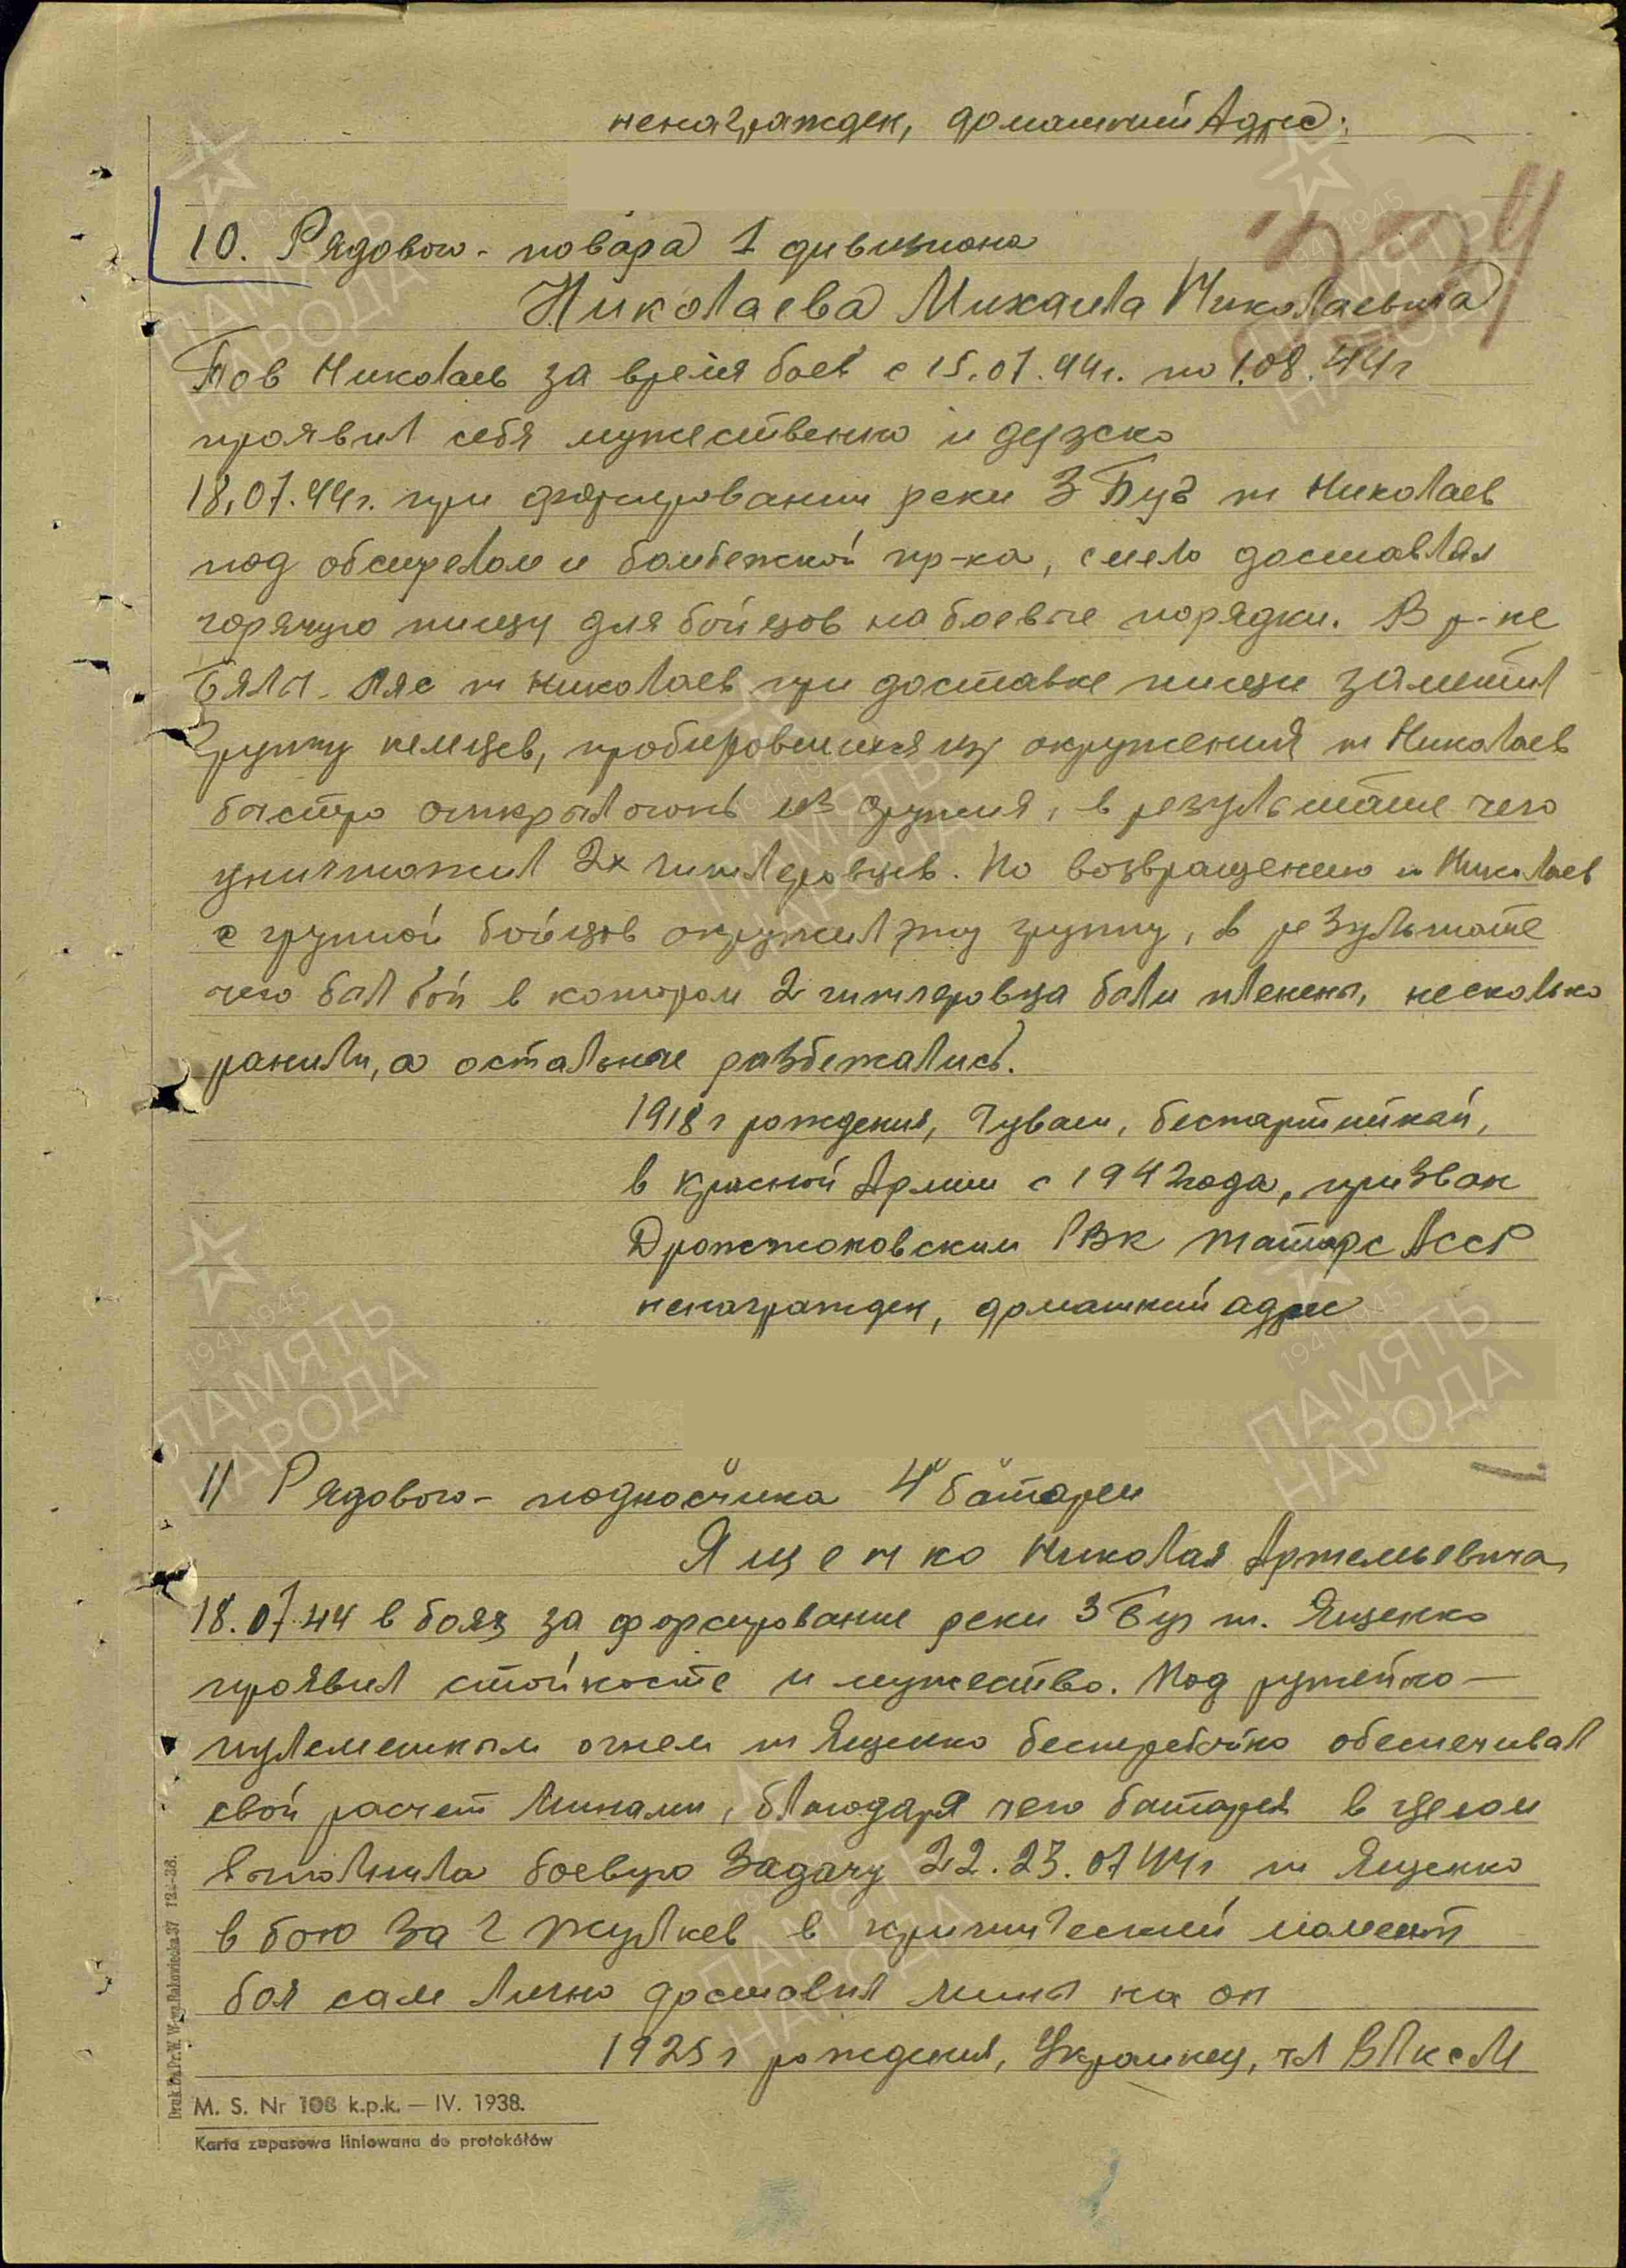 ненагражден, домашний Адрес:
334
10. Рядового - повара 1 дивизиона
Николаева Михаила Николаевича
Тов Николаев за время боев с 15.07.44г. по 1.08.44г
проявил себя мужественно и дерзско
18.07.44г. при форсировании реки З Буг т Николаев
под обстрелом и бомбежкой пр-ка, смело доставлял
горячую пищу для бойцов на боевые порядки. В р-не
Бялы-Пляс т Николаев при доставке пищи заметил
группу немцев, пробировшихся из окружения т Николаев
быстро открыл огонь из оружия, в результате чего
уничтожил 2х гитлеровцев. По возвращению т Николаев
с групой бойцов окружил эту групу, в результате
чего был бой в котором 2 гитлеровца были пленены, несколько
ранили, а остальные разбежались.
1918 г рождения, Чуваш, беспартийный,
в Красной Армии с 1942года, призван
Дрожжановским РВК Татарс АССР
ненагражден, домашний адрес
11 Рядового - подносчика 4й батареи
Ященко Николая Артемьевича
18.07.44 в боях за форсирование реки З Буг т. Ященко
проявил стойкость и мужество. Под ружейно-
пулеметным огнем т Ященко бесперебойно обеспечивал
свой расчет минами, благодаря чего батарея в целом
выполнила боевую задачу 22.23.07 44г т Ященко
в бою за г Жулкев в критический момент
боя сам лично доставил мины на оп
1925 г рождения, Украинец, чл ВЛКСМ
M. S. Nr 108 k.p.k. — IV. 1938.
Karta zapasowa liniowana do protokółów
ПАМЯТЬ
НАРОДА
1941-1945